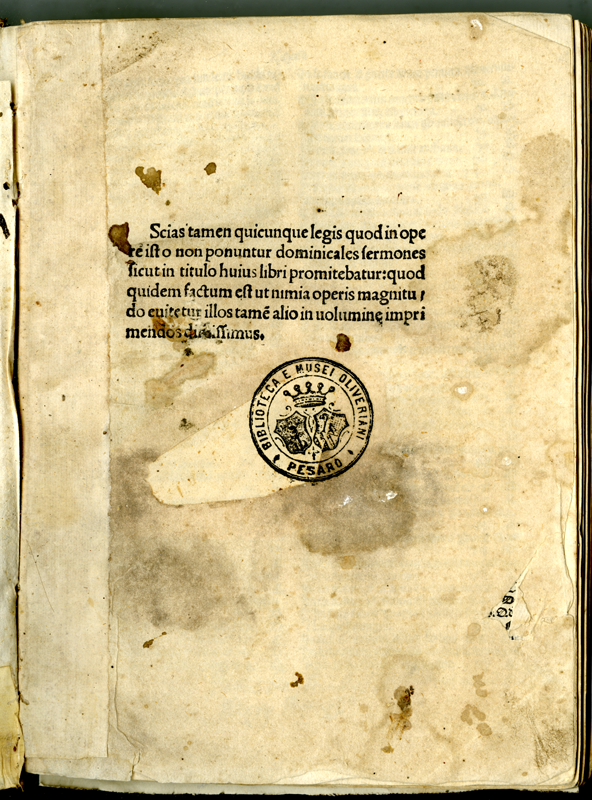 Scias tamen quicunque legis quod in ope
re ist o non ponuntur dominicales sermones
sicut in titulo huius libri promitebatur: quod
quidem factum est ut nimia operis magnitu,
do euitetur illos tamē alio in uolumine impri
mendos
BIBLIOTECA E MUSEI OLIVERIANI
PESARO